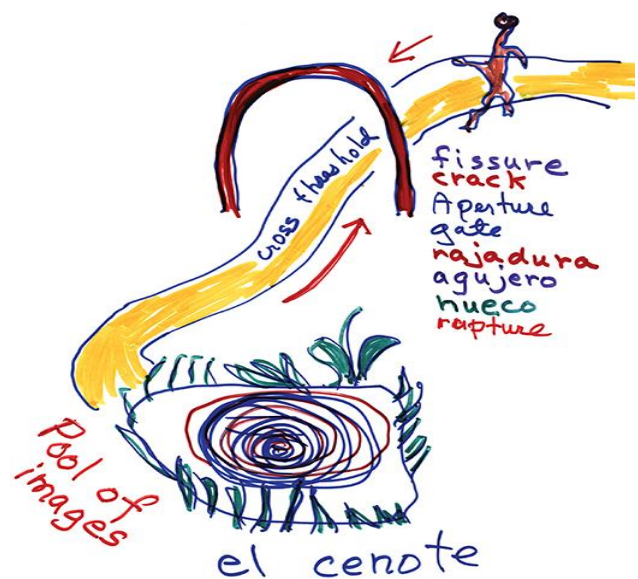 cross threshold
fissure
crack
Aperture
gate
rajadura
agujero
hueco
rapture
Pool of
images
el cenote